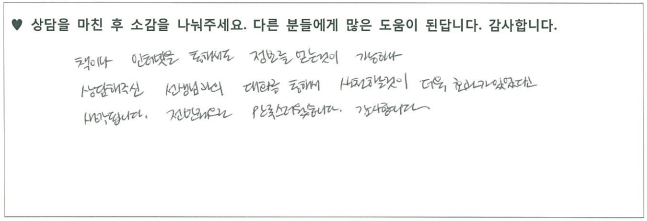 ♥ 상담을 마친 후 소감을 나눠주세요. 다른 분들에게 많은 도움이 된답니다. 감사합니다.
책이나 인터넷을 통해서도 정보를 얻는것이 가능하나
상담해주신 선생님과의 대화를 통해서 실천할것이 더욱 효과가 있었다고
생각됩니다. 전반적으로 만족스러웠습니다. 감사합니다.